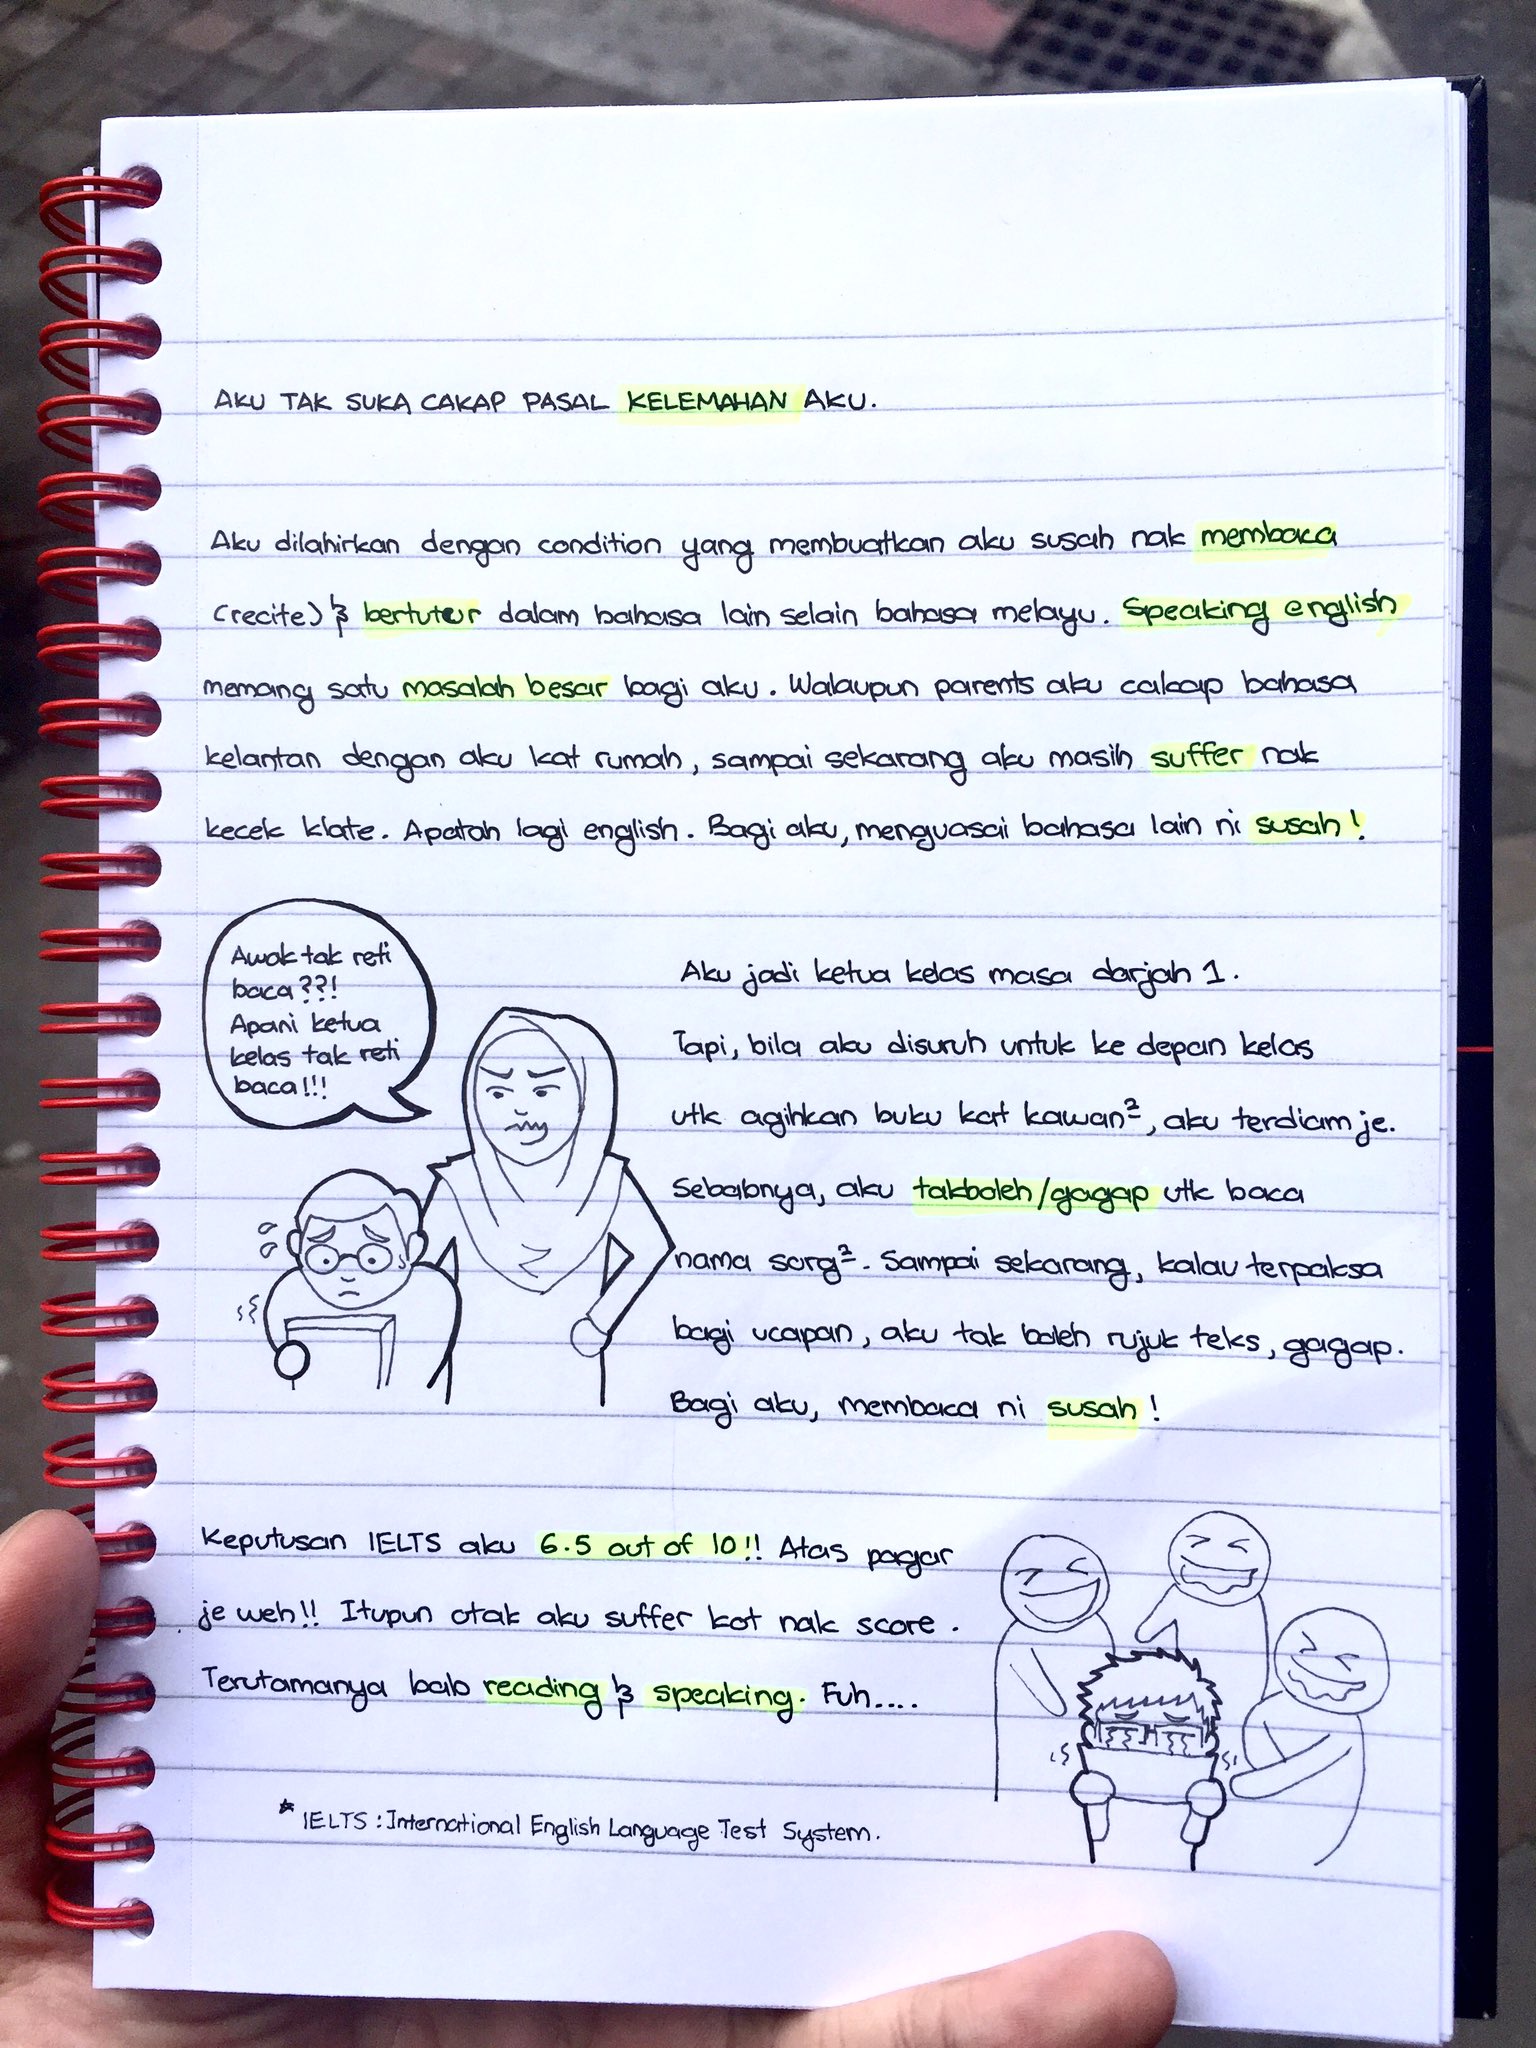 AKU TAK SUKA CAKAP PASAL KELEMAHAN AKU.
Aku dilahirkan dengan condition yang membuatkan aku susah nak membaca
(recite) & bertutur dalam bahasa lain selain bahasa melayu. Speaking english
memang satu masalah besar bagi aku. Walaupun parents aku cakap bahasa
kelantan dengan aku kat rumah, sampai sekarang aku masih suffer nak
kecek klate. Apatah lagi english. Bagi aku, menguasai bahasa lain ni susah!
Awak tak reti
baca??!
Apani ketua
kelas tak reti
baca!!!
Aku jadi ketua kelas masa darjah 1.
Tapi, bila aku disuruh untuk ke depan kelas
utk agihkan buku kat kawan², aku terdiam je.
Sebabnya, aku takboleh/gagap utk baca
nama sorg². Sampai sekarang, kalau terpaksa
bagi ucapan, aku tak boleh rujuk teks, gagap.
Bagi aku, membaca ni susah!
Keputusan IELTS aku 6.5 out of 10!! Atas pagar
je weh!! Itupun otak aku suffer kot nak score.
Terutamanya bab reading & speaking. Fuh....
* IELTS : International English Language Test System.